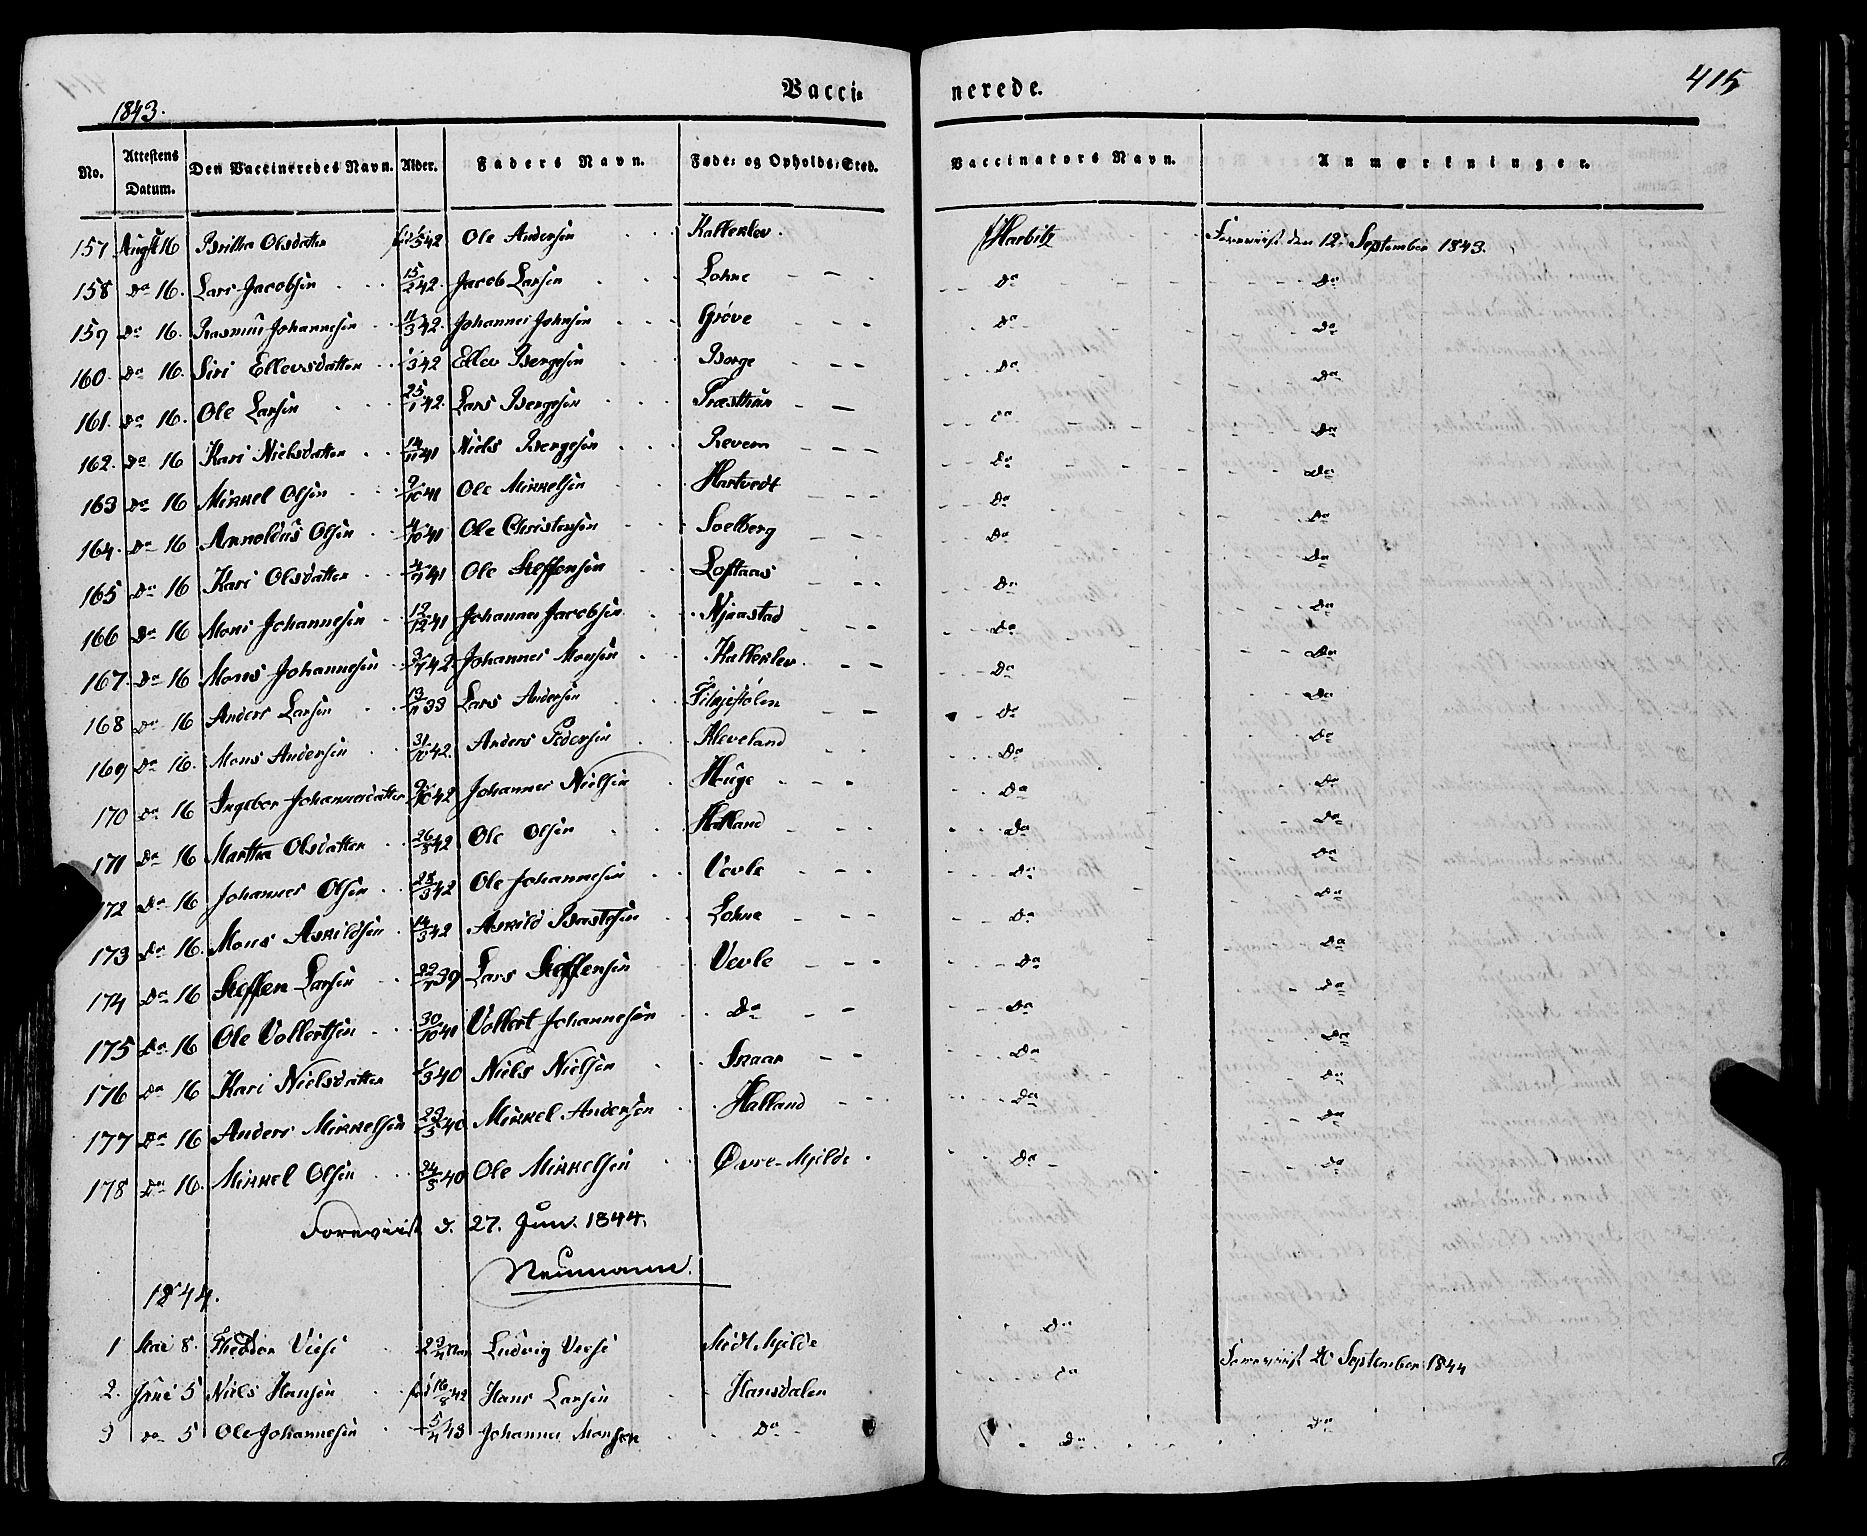 Vaccinerede.
415
1843.
No. Attestens Datum. Den Vaccineredes Navn. Alder. Faders Navn. Føde- og Opholds-Sted. Vaccinators Navn. Anmærkninger.
157 Augst 16 Britha Olsdatter 42 Ole Andersen Kalleklev. Harbitz Foreviist den 12 September 1843.
158 Do 16. Lars Jacobsen 15/2 42. Jacob Larsen Lohne Do Do
159 Do 16. Rasmus Johannesen 11/3 42. Johannes Johnsen Grove Do Do
160. Do 16. Siri Ellevsdatter /3 42 Ellev Bergesen Borge Do Do
161. Do 16. Ole Larsen 25/1 42. Lars Bergesen Præsthuun Do Do
162. Do 16 Kari Nielsdatter 14/11 41 Niels Bergesen Revem Do Do
163 Do 16 Mikkel Olsen 9/10 41 Ole Mikkelsen Hartvedt Do Do
164. Do 16 Arnoldus Olsen 4/10 41 Ole Christensen Soelberg Do Do
165 Do 16 Kari Olsdatter 4/7 41 Ole Steffensen Loftaas Do Do
166 Do 16 Mons Johannesen 12/12 41 Johannes Jacobsen Njaastad Do Do
167. Do 16 Mons Johannesen 3/7 42 Johannes Monsen Kalleklev. Do Do
168 Do 16 Anders Larsen 13/11 33 Lars Andersen Titlestølen Do Do
169 Do 16. Mons Andersen 31/10 42. Anders Pedersen Kleveland Do Do
170 Do 16 Ingebor Johannesdatter 9/10 42 Johannes Nielsen Huge Do Do
171 Do 16 Martha Olsdatter 26/8 42 Ole Olsen Hatland Do Do
172 Do 16 Johannes Olsen 28/3 42 Ole Johannesen Vevle Do Do
173 Do 16. Mons Askildsen 14/3 42 Askild Brastesen Lohne Do Do
174 Do 16 Steffen Larsen 22/7 39 Lars Steffensen Vevle Do Do
175 Do 16 Ole Vollertsen 30/10 41 Vollert Johannesen Do Do Do
176 Do 16 Kari Nielsdatter 1/3 40 Niels Nielsen Skaar Do Do
177 Do 16 Anders Mikkelsen 23/5 40 Mikkel Andersen Halland Do Do
178 Do 16. Mikkel Olsen 24/3 40 Ole Mikkelsen Øvre-Mjelde Do Do
Foreviist d. 27. Jun. 1844.
Neumann.
1844.
1 Mai 8. Theodor Viese Ludvig Viese Midt Mjelde Do Foreviist 20 September 1844
2. Juni 5 Niels Hansen fød 16/8 42 Hans Larsen Hansdalen Do
3 Do 5 Ole Johannesen 5/11 43 Johannes Monsen Do Do Do